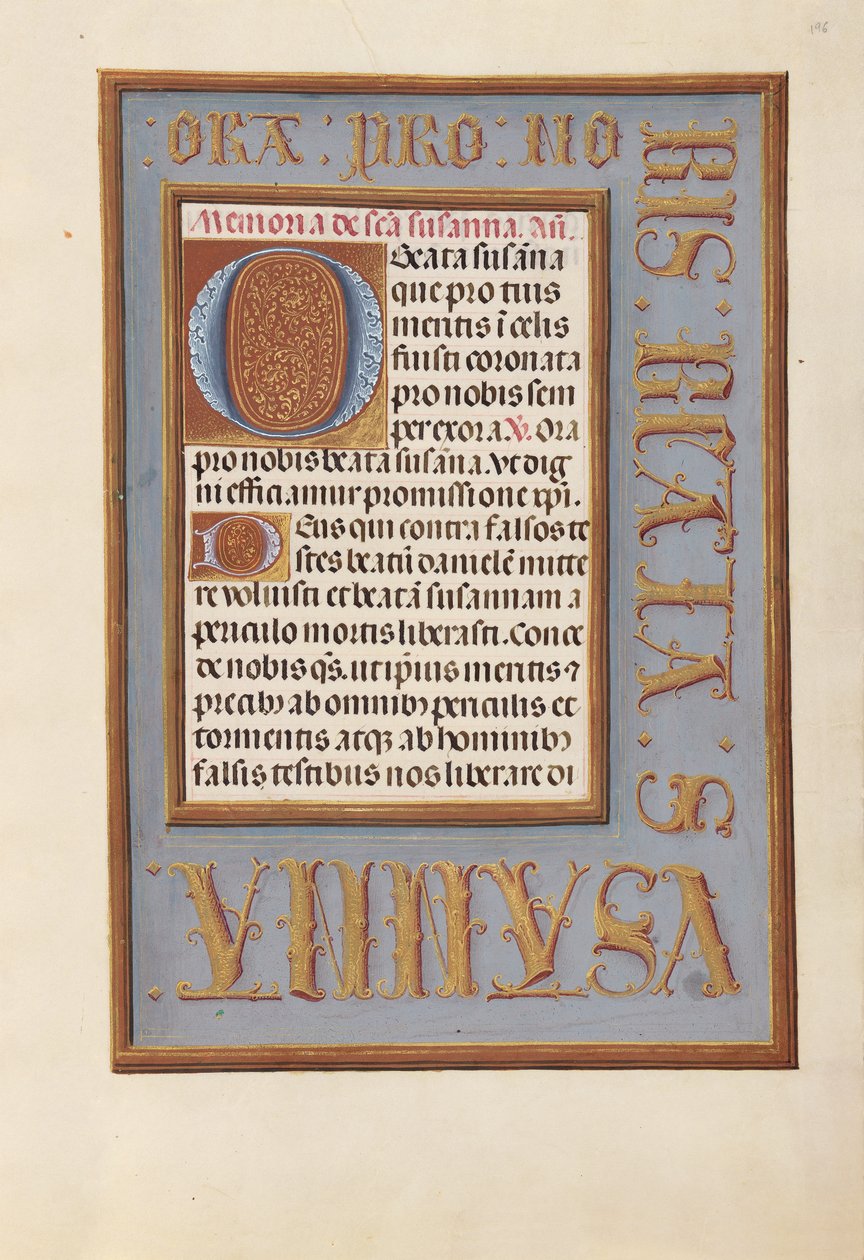 196
: ORA : PRO : NO
BIS : BEATA : S
VSANNA :
Memoria de scā susanna. Añ.
O Beata susāna
que pro tuis
meritis ī celis
fuisti coronata
pro nobis sem
per exora. V. Ora
pro nobis beata susāna. Vt dig
ni efficiamur promissione xp̄i.
DEus qui contra falsos te
stes beatū danielē mitte
re voluisti et beatā susannam a
periculo mortis liberasti. Conce
de nobis qs̄. ut ip̄ius meritis ⁊
precibꝫ ab omnibꝫ periculis et
tormentis atqꝫ ab hominibꝫ
falsis testibus nos liberare di